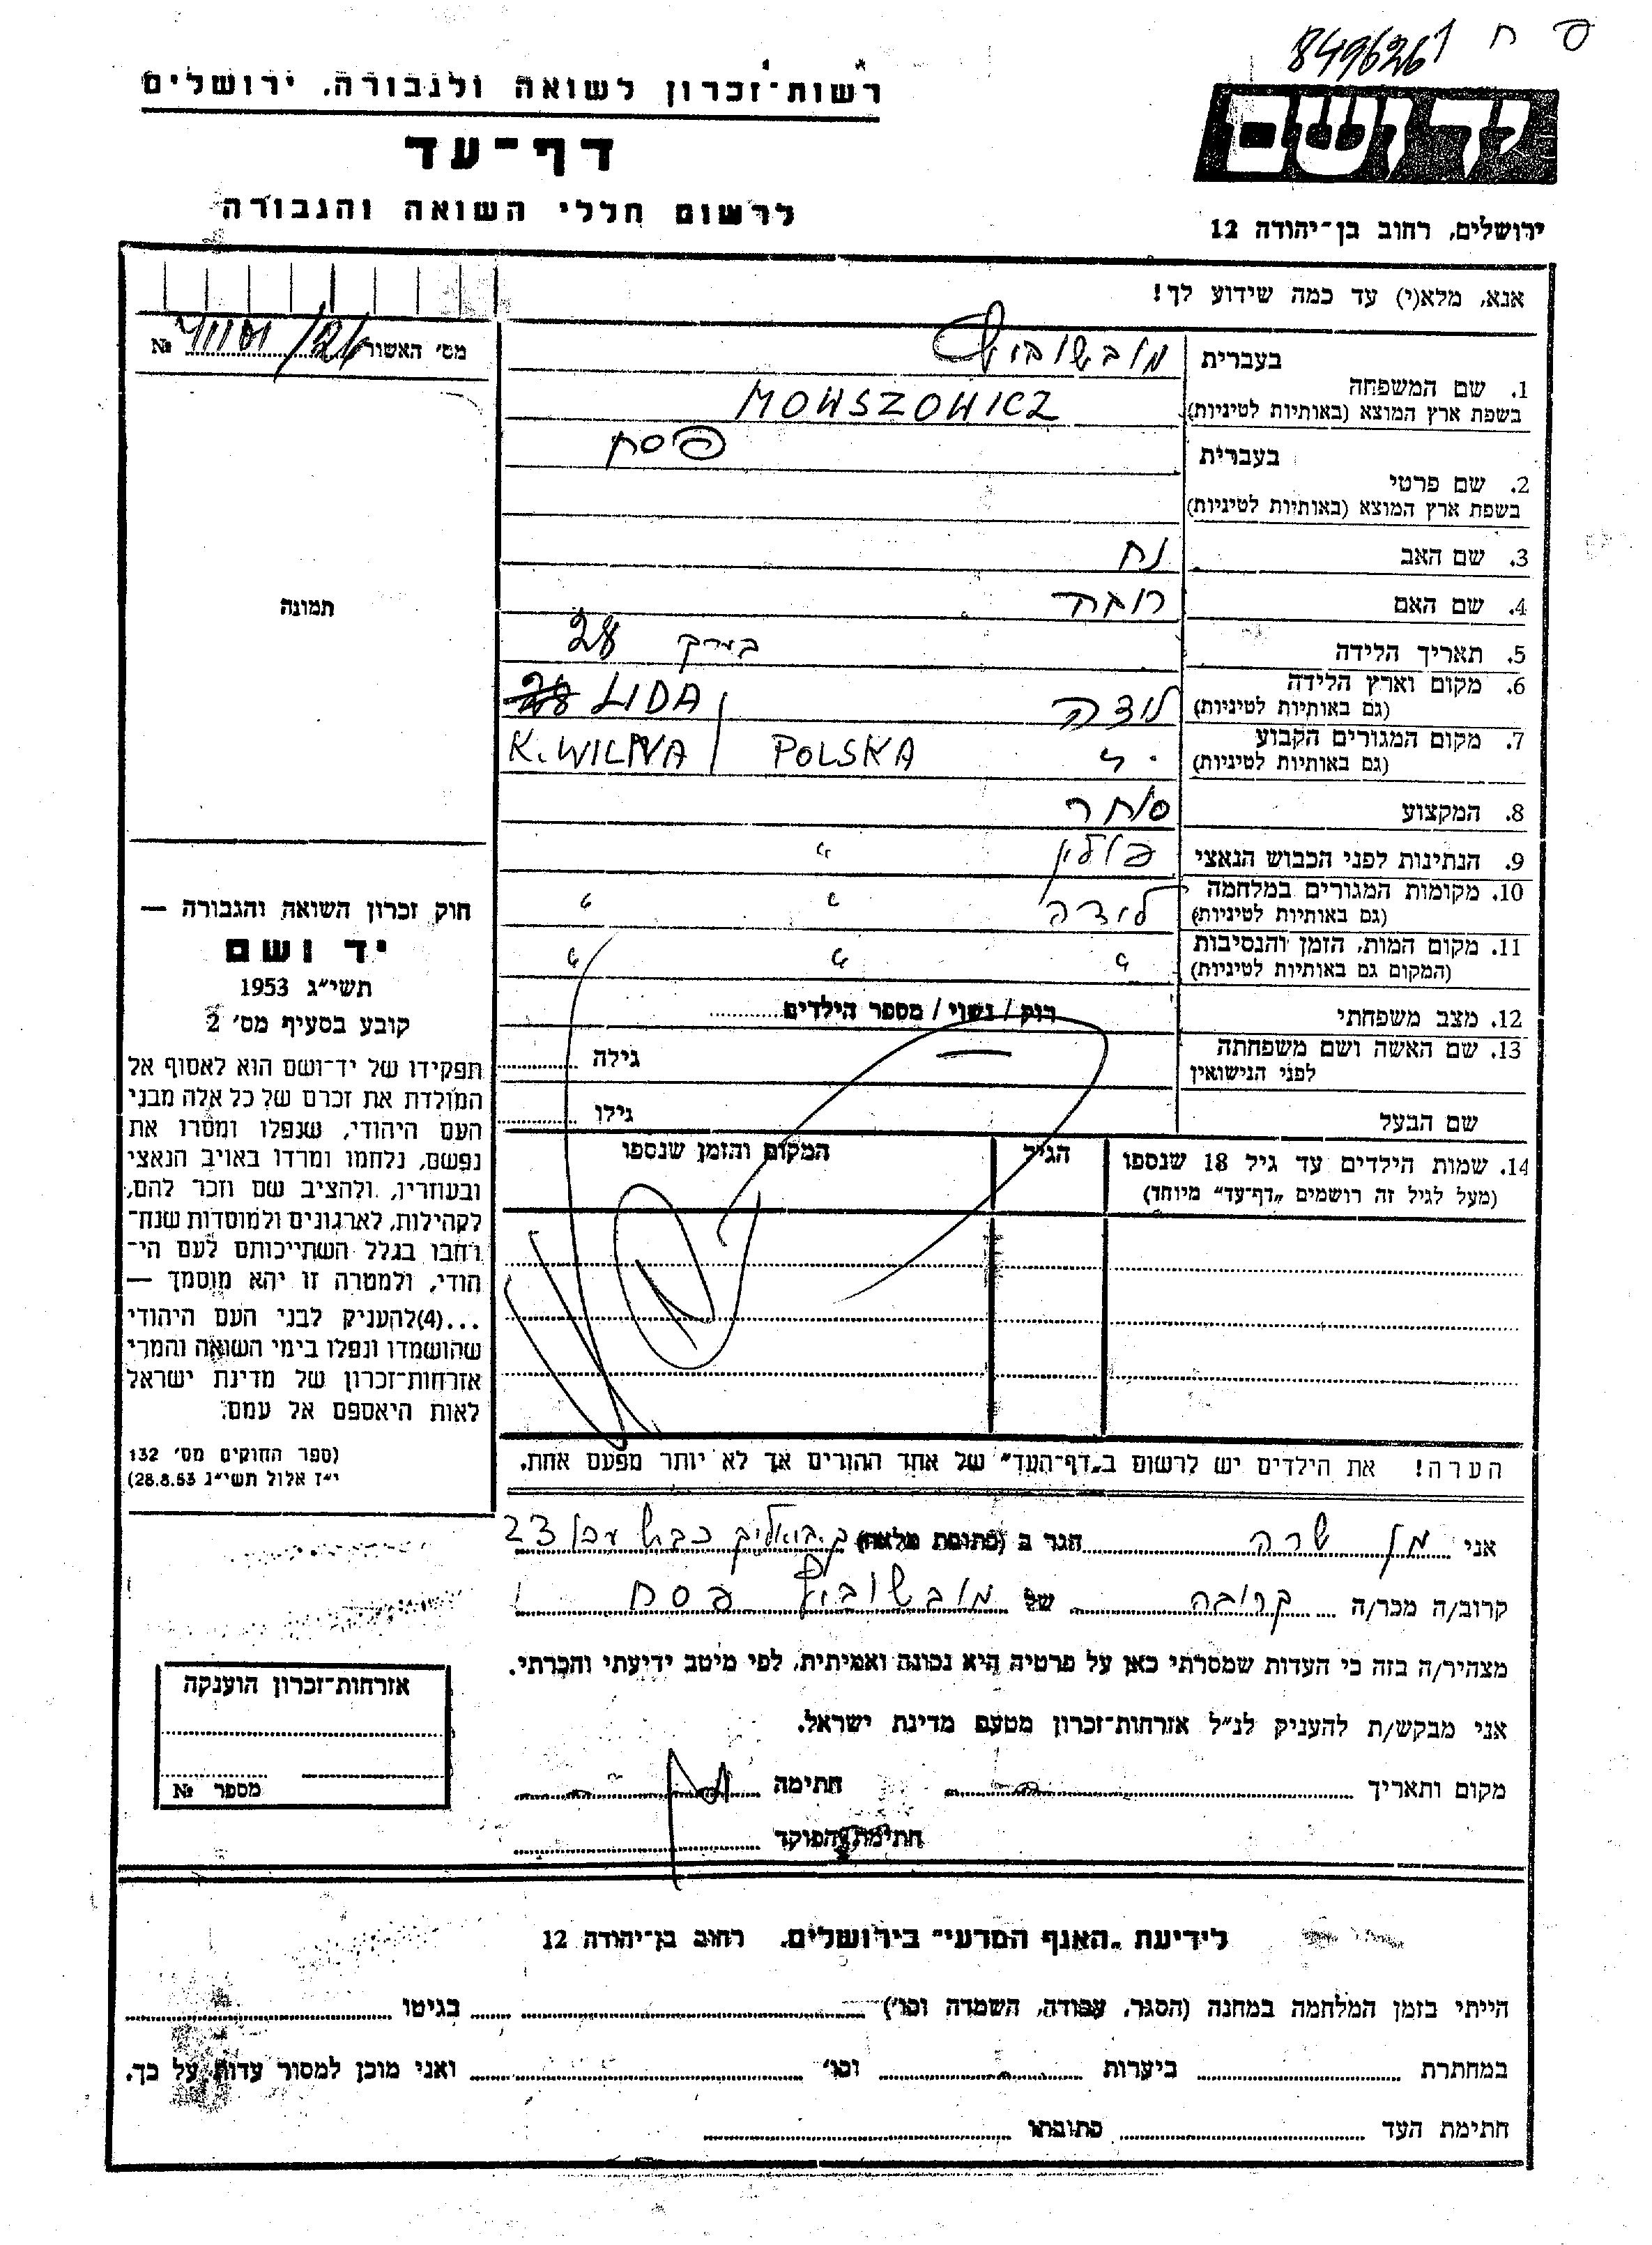 8496261
פ ח
רשות־זכרון לשואה ולגבורה, ירושלים
דף־עד
לרשום חללי השואה והגבורה
יד ושם
ירושלים, רחוב בן־יהודה 12
אנא, מלא(י) עד כמה שידוע לך!
מס׳ האשור №
1. שם המשפחה
בעברית מובשוביץ
בשפת ארץ המוצא (באותיות לטיניות) MOWSZOWICZ
2. שם פרטי
בעברית פסח
בשפת ארץ המוצא (באותיות לטיניות)
3. שם האב נח
4. שם האם רובה
5. תאריך הלידה בערך 28
6. מקום וארץ הלידה
(גם באותיות לטיניות) לידה LIDA
7. מקום המגורים הקבוע
(גם באותיות לטיניות) POLSKA K. WILNA
8. המקצוע סוחר
9. הנתינות לפני הכבוש הנאצי פולין "
10. מקומות המגורים במלחמה
(גם באותיות לטיניות) לידה " "
11. מקום המות, הזמן והנסיבות
(המקום גם באותיות לטיניות) " " "
12. מצב משפחתי רוק / נשוי / מספר הילדים
13. שם האשה ושם משפחתה
לפני הנישואין — גילה
שם הבעל גילו
14. שמות הילדים עד גיל 18 שנספו
(מעל לגיל זה רושמים „דף־עד" מיוחד)
הגיל
המקום והזמן שנספו
הערה! את הילדים יש לרשום ב„דף־העד" של אחד ההורים אך לא יותר מפעם אחת.
תמונה
חוק זכרון השואה והגבורה —
יד ושם
תשי״ג 1953
קובע בסעיף מס׳ 2
תפקידו של יד־ושם הוא לאסוף אל
המולדת את זכרם של כל אלה מבני
העם היהודי, שנפלו ומסרו את
נפשם, נלחמו ומרדו באויב הנאצי
ובעוזריו, ולהציב שם וזכר להם,
לקהילות, לארגונים ולמוסדות שנח־
רחבו בגלל השתייכותם לעם הי־
הודי, ולמטרה זו יהא מוסמך —
...(4)להעניק לבני העם היהודי
שהושמדו ונפלו בימי השואה והמרי
אזרחות־זכרון של מדינת ישראל
לאות היאספם אל עמם.
(ספר החוקים מס׳ 132
י״ז אלול תשי״ג 28.8.53)
אני שרה הגר ב (כתובת מלאה) 23
קרוב/ה מכר/ה קרובה של מובשוביץ פסח
מצהיר/ה בזה כי העדות שמסרתי כאן על פרטיה היא נכונה ואמיתית, לפי מיטב ידיעתי והכרתי.
אני מבקש/ת להעניק לנ״ל אזרחות־זכרון מטעם מדינת ישראל.
מקום ותאריך חתימה
חתימת הפוקד
אזרחות־זכרון הוענקה
מספר №
לידיעת „האגף המדעי" בירושלים, רחוב בן־יהודה 12
הייתי בזמן המלחמה במחנה (הסגר, עבודה, השמדה וכו׳) בגיטו
במחתרת ביערות וכו׳ ואני מוכן למסור עדות על כך.
חתימת העד כתובתו